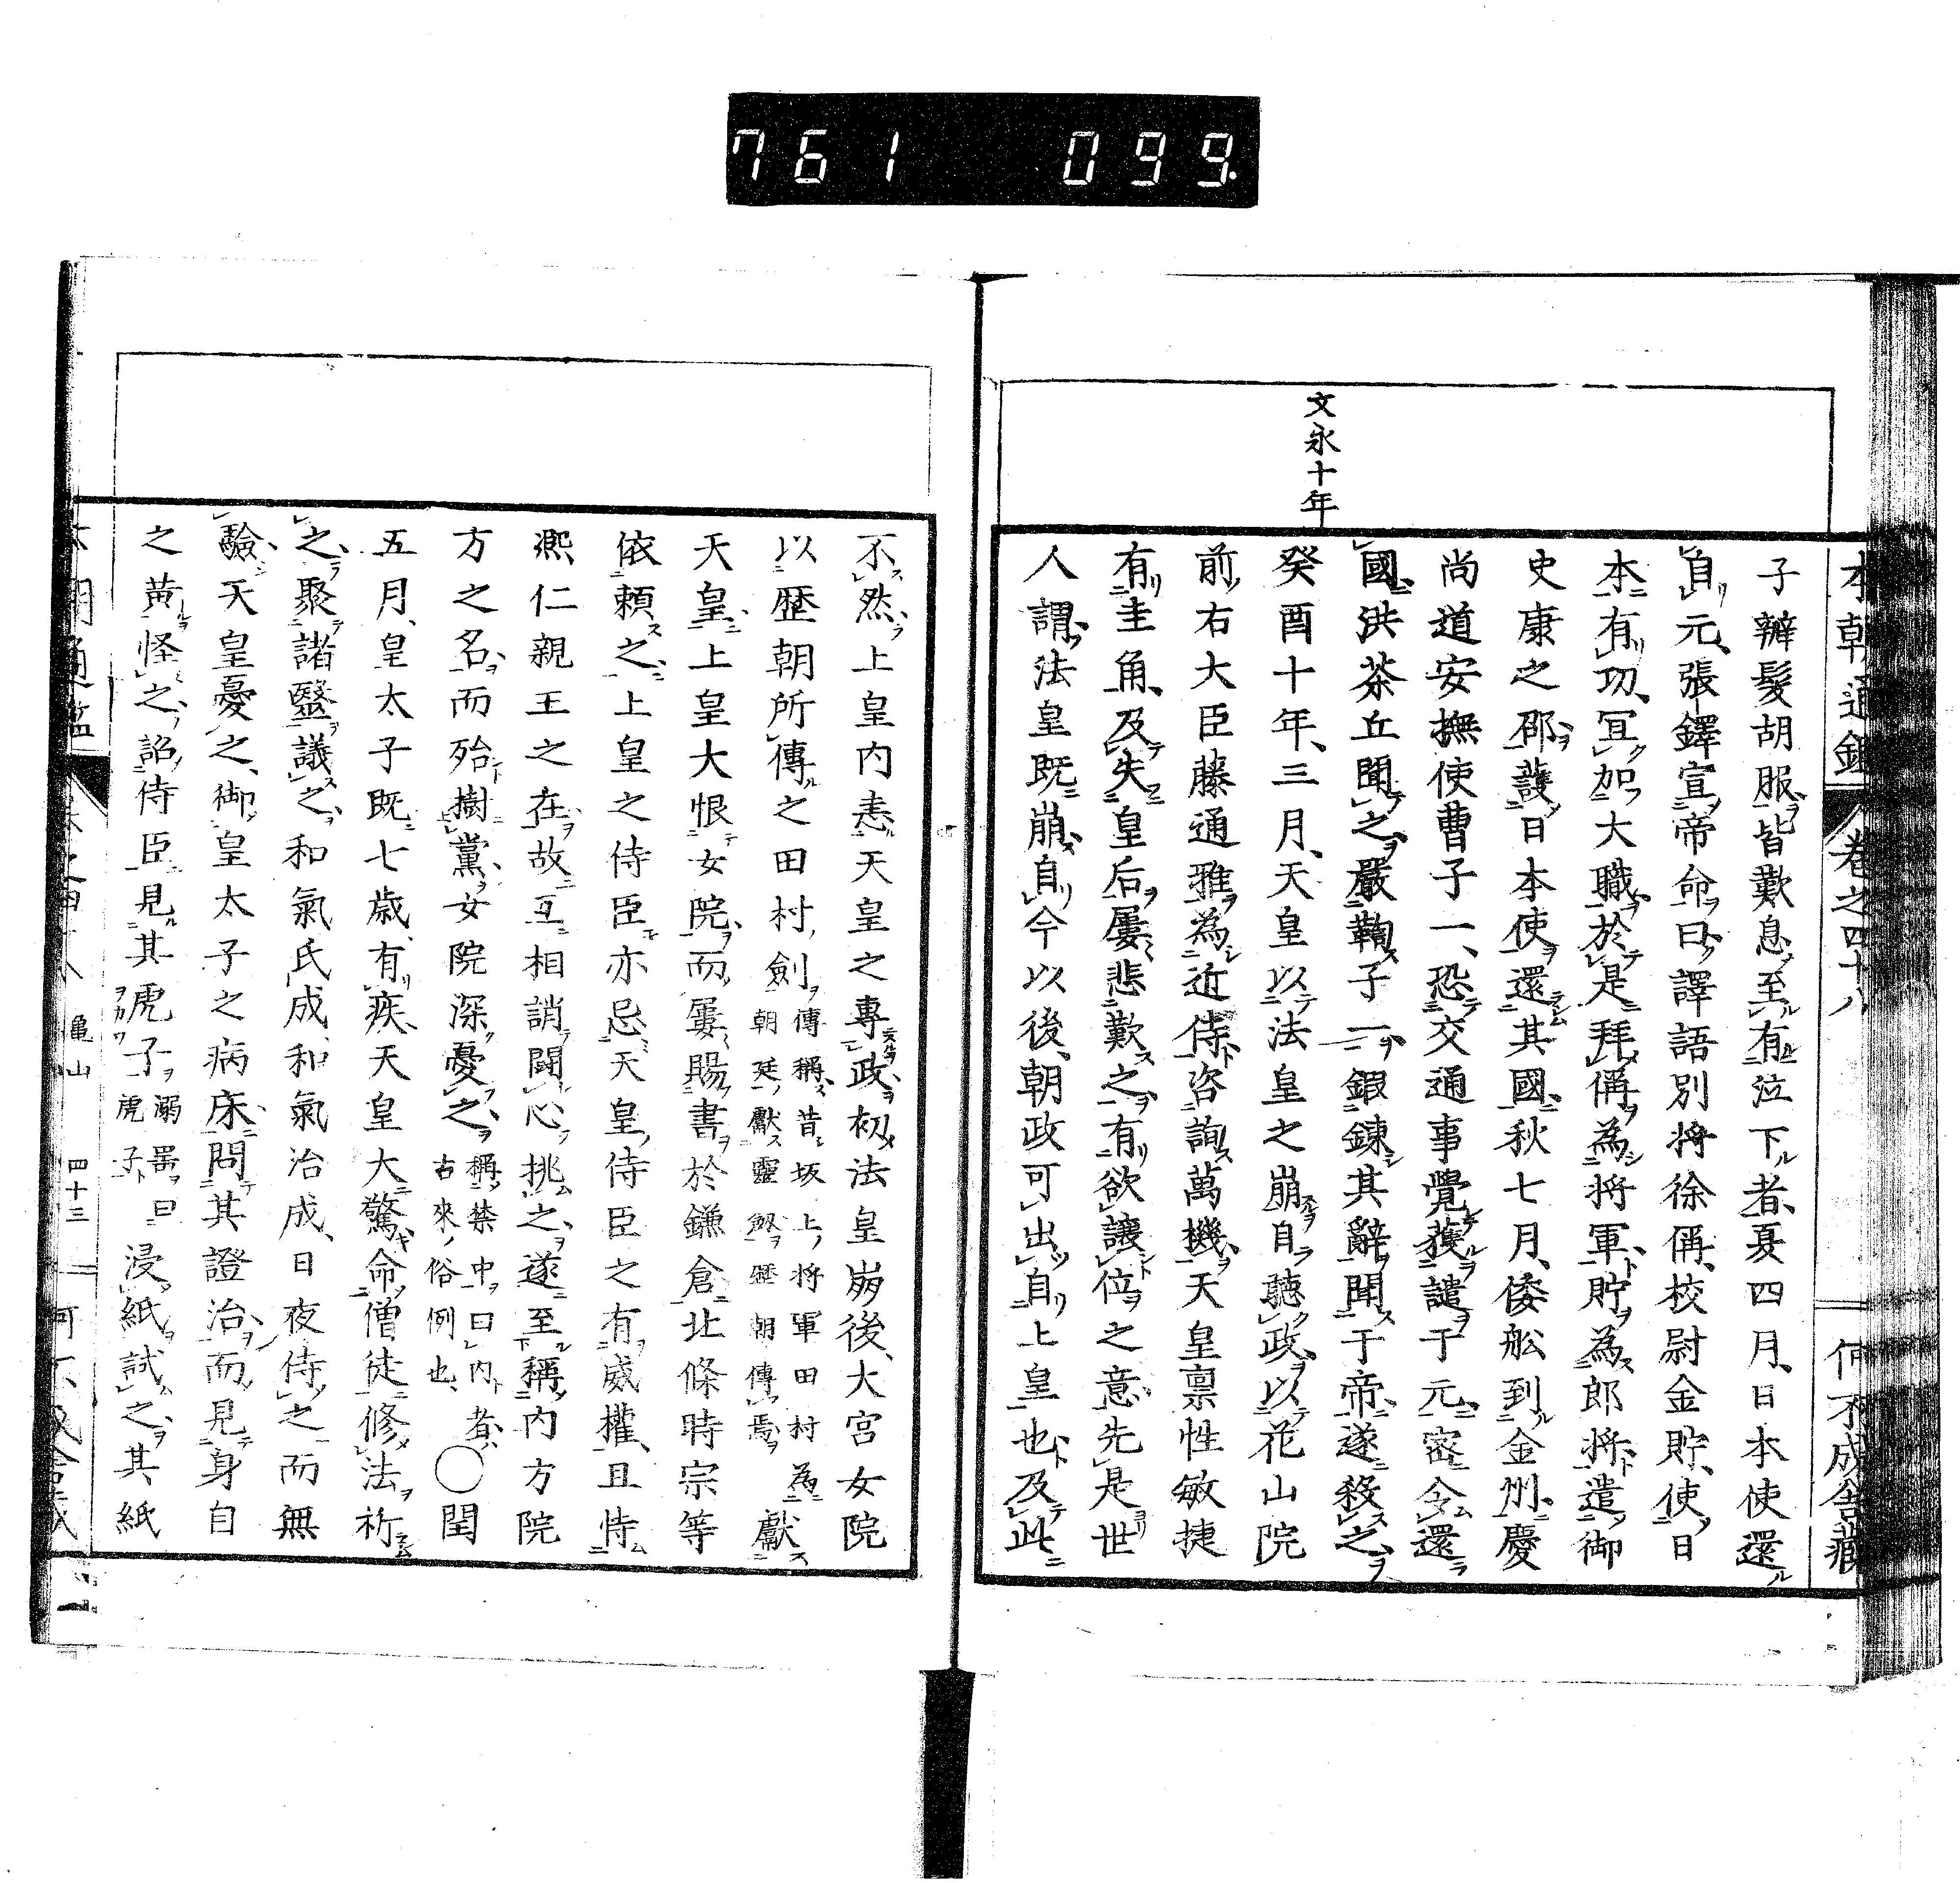 761 099.
本朝通鑑 卷之四十八 何不成舍藏
文永十年
子辮髮胡服皆歎息至有泣下者夏四月日本使還
自元張鐸宣帝命曰譯語別將徐偁校尉金貯使日
本有功宜加大職於是拜偁為將軍貯為郎將遣御
史康之邵護日本使還其國秋七月倭舩到金州慶
尚道安撫使曹子一恐交通事覺獲譴于元密令還
國洪茶丘聞之嚴鞫子一鍜鍊其辭聞于帝遂殺之
癸酉十年三月天皇以法皇之崩自聽政以花山院
前右大臣藤通雅為近侍咨詢萬機天皇禀性敏捷
有圭角及失皇后屢悲歎之有欲讓位之意先是世
人謂法皇既崩自今以後朝政可出自上皇也及此
不然上皇内恚天皇之專政初法皇崩後大宮女院
以歴朝所傳之田村劍傳稱昔坂上將軍田村為朝廷獻靈劔歴朝傳焉獻
天皇上皇大恨女院而屢賜書於鎌倉北條時宗等
依頼之上皇之侍臣亦忌天皇侍臣之有威權且恃
凞仁親王之在故互相誚鬪心挑之遂至稱内方院
方之名而殆樹黨女院深憂之稱禁中曰内者古來俗例也○閏
五月皇太子既七歳有疾天皇大驚命僧徒修法祈
之聚諸醫議之和氣氏成和氣治成日夜侍之而無
驗天皇憂之御皇太子之病床問其證治而見身自
之黃怪之詔侍臣見其虎子溺器曰虎子浸紙試之其紙
亀山 四十三